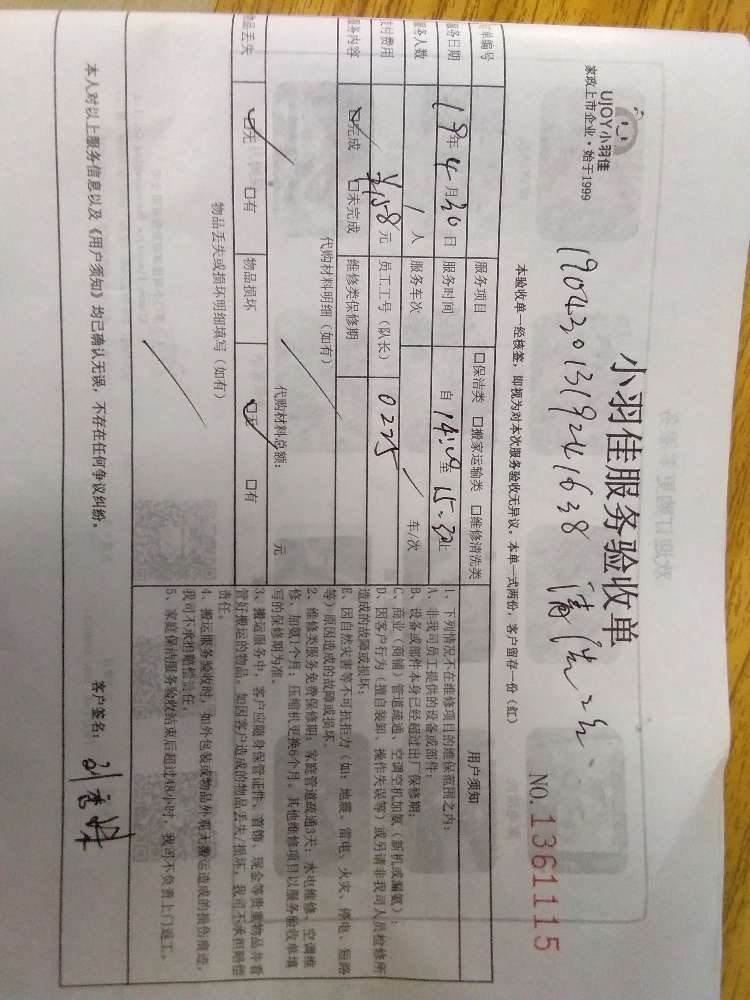 UJOY小羽佳
家政上市企业·始于1999
小羽佳服务验收单
1904301319241638 清洗
NO.1361115
本验收单一经核签，即视为对本次服务验收无异议。本单一式两份，客户留存一份（红）
单编号
服务项目 口保洁类 口搬家运输类 口维修清洗类
用户须知
服务日期 19年4月30日 服务时间 自 至15:30止
服务人数 1人 服务车次 车/次
支付费用 ¥158元 员工工号（队长） 0225
服务内容 口完成 口未完成 维修类保修期
代购材料明细（如有）
代购材料总额： 元
物品丢失 口无 口有 物品损坏 口无 口有
物品丢失或损坏明细填写（如有）
1、下列情况不在维修项目的维保范围之内：
A、非我司员工提供的设备或部件；
B、设备或部件本身已经超过出厂保修期；
C、商业（商铺）管道疏通、空调空机加氨（新机或漏氨）；
D、因客户行为（擅自装卸、操作失误等）或另请非我司人员检修所
造成的故障或损坏；
E、因自然灾害等不可抗拒力（如：地震、雷电、火灾、停电、短路
等）原因造成的故障或损坏。
2、维修类服务免费保修期：家庭管道疏通3天；水电维修、空调维
修、加氨1个月；压缩机更换6个月。其他维修项目以服务验收单填
写的保修期为准。
3、搬运服务中，客户应随身保管证件、首饰、现金等贵重物品并看
管好搬运的物品。如因客户造成的物品丢失/损坏，我司不承担赔偿
责任。
4、搬运服务验收时，如外包装或物品外观无搬运造成的损伤痕迹，
我司不承担赔偿责任。
5、家庭保洁服务验收结束后超过48小时，我司不负责上门返工。
本人对以上服务信息以及《用户须知》均已确认无误，不存在任何争议纠纷。
客户签名：